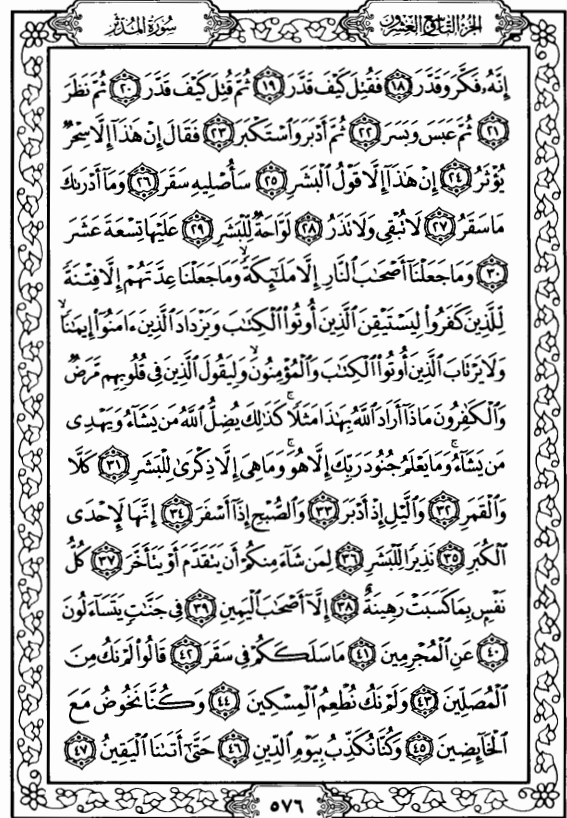 سُورَةُ المُدَّثِّر الجُزْءُ التَّاسِعُ وَالعِشْرُونَ
إِنَّهُۥ فَكَّرَ وَقَدَّرَ ١٨ فَقُتِلَ كَيْفَ قَدَّرَ ١٩ ثُمَّ قُتِلَ كَيْفَ قَدَّرَ ٢٠ ثُمَّ نَظَرَ
٢١ ثُمَّ عَبَسَ وَبَسَرَ ٢٢ ثُمَّ أَدْبَرَ وَٱسْتَكْبَرَ ٢٣ فَقَالَ إِنْ هَٰذَآ إِلَّا سِحْرٌ
يُؤْثَرُ ٢٤ إِنْ هَٰذَآ إِلَّا قَوْلُ ٱلْبَشَرِ ٢٥ سَأُصْلِيهِ سَقَرَ ٢٦ وَمَآ أَدْرَىٰكَ
مَا سَقَرُ ٢٧ لَا تُبْقِى وَلَا تَذَرُ ٢٨ لَوَّاحَةٌ لِّلْبَشَرِ ٢٩ عَلَيْهَا تِسْعَةَ عَشَرَ
٣٠ وَمَا جَعَلْنَآ أَصْحَٰبَ ٱلنَّارِ إِلَّا مَلَٰٓئِكَةً ۙ وَمَا جَعَلْنَا عِدَّتَهُمْ إِلَّا فِتْنَةً
لِّلَّذِينَ كَفَرُوا۟ لِيَسْتَيْقِنَ ٱلَّذِينَ أُوتُوا۟ ٱلْكِتَٰبَ وَيَزْدَادَ ٱلَّذِينَ ءَامَنُوٓا۟ إِيمَٰنًا ۙ
وَلَا يَرْتَابَ ٱلَّذِينَ أُوتُوا۟ ٱلْكِتَٰبَ وَٱلْمُؤْمِنُونَ ۙ وَلِيَقُولَ ٱلَّذِينَ فِى قُلُوبِهِم مَّرَضٌ
وَٱلْكَٰفِرُونَ مَاذَآ أَرَادَ ٱللَّهُ بِهَٰذَا مَثَلًا ۚ كَذَٰلِكَ يُضِلُّ ٱللَّهُ مَن يَشَآءُ وَيَهْدِى
مَن يَشَآءُ ۚ وَمَا يَعْلَمُ جُنُودَ رَبِّكَ إِلَّا هُوَ ۚ وَمَا هِىَ إِلَّا ذِكْرَىٰ لِلْبَشَرِ ٣١ كَلَّا
وَٱلْقَمَرِ ٣٢ وَٱلَّيْلِ إِذْ أَدْبَرَ ٣٣ وَٱلصُّبْحِ إِذَآ أَسْفَرَ ٣٤ إِنَّهَا لَإِحْدَى
ٱلْكُبَرِ ٣٥ نَذِيرًا لِّلْبَشَرِ ٣٦ لِمَن شَآءَ مِنكُمْ أَن يَتَقَدَّمَ أَوْ يَتَأَخَّرَ ٣٧ كُلُّ
نَفْسٍۭ بِمَا كَسَبَتْ رَهِينَةٌ ٣٨ إِلَّآ أَصْحَٰبَ ٱلْيَمِينِ ٣٩ فِى جَنَّٰتٍ يَتَسَآءَلُونَ
٤٠ عَنِ ٱلْمُجْرِمِينَ ٤١ مَا سَلَكَكُمْ فِى سَقَرَ ٤٢ قَالُوا۟ لَمْ نَكُ مِنَ
ٱلْمُصَلِّينَ ٤٣ وَلَمْ نَكُ نُطْعِمُ ٱلْمِسْكِينَ ٤٤ وَكُنَّا نَخُوضُ مَعَ
ٱلْخَآئِضِينَ ٤٥ وَكُنَّا نُكَذِّبُ بِيَوْمِ ٱلدِّينِ ٤٦ حَتَّىٰٓ أَتَىٰنَا ٱلْيَقِينُ ٤٧
٥٧٦